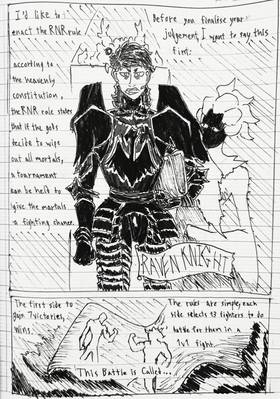 I'd like to
enact the RNR rule
according to
the heavenly
constitution,
the RNR rule states
that if the gods
decide to wipe
out all mortals,
a tournament
can be held to
give the mortals
a fighting chance.
Before you finalise your
judgement, I want to say this
first:
RAVEN KNIGHT
The first side to
gain 7 victories,
wins.
The rules are simple, each
side selects 13 fighters to do
battle for them in a
1v1 fight.
This Battle is Called...